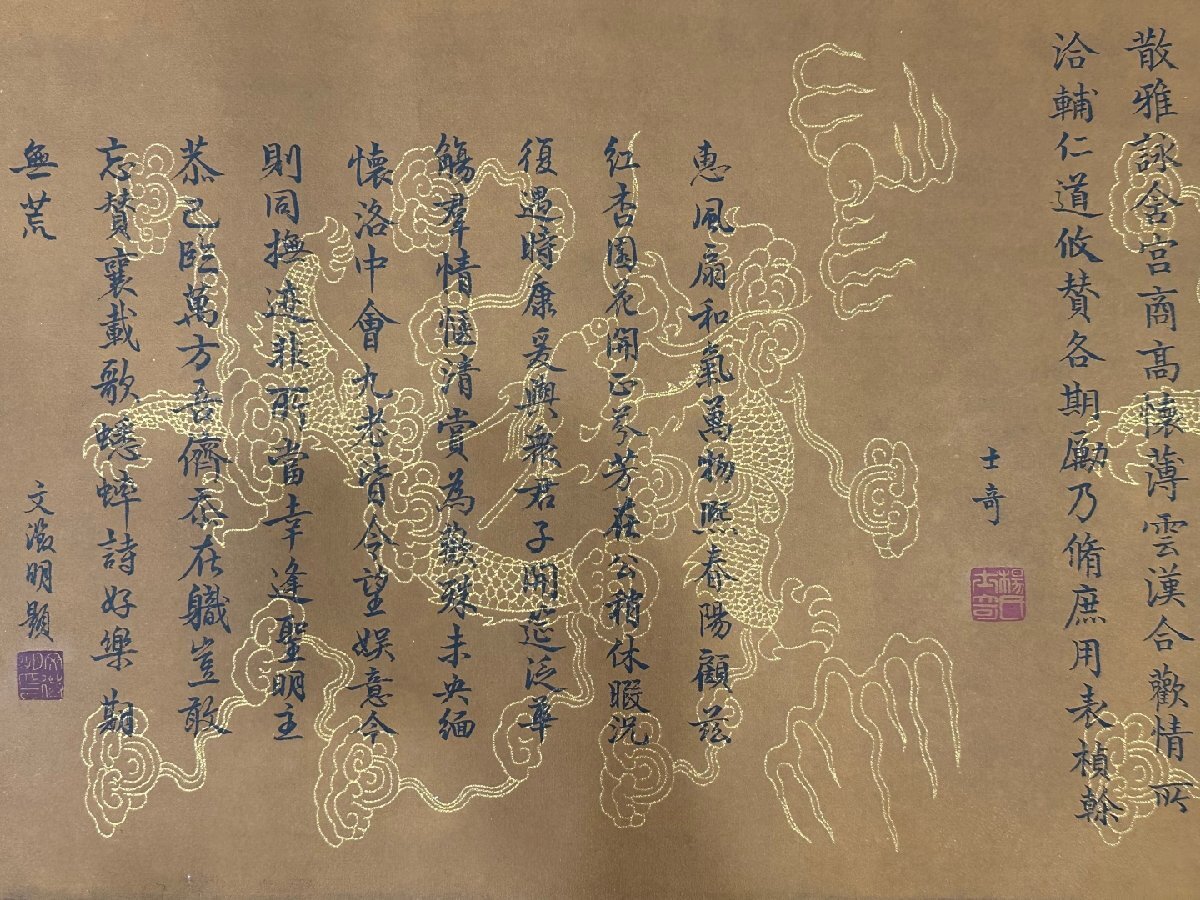 散雅詠含宮商高懷薄雲漢合歡情所
洽輔仁道攸賛各期勵乃脩庶用表楨榦
士奇
楊士奇
惠風扇和氣萬物熙春陽顧茲
紅杏園花開正芩芳在公稍休暇況
復遇時康爰輿衆君子開莚泛華
觴羣情愜清賞為歡殊未央緬
懷洛中會九老皆令望娛意今
則同撫迹非所當幸逢聖明主
恭己臨萬方吾儕忝在軄豈敢
忘賛襄載歌蟋蟀詩好樂期
無荒
文澂明顥